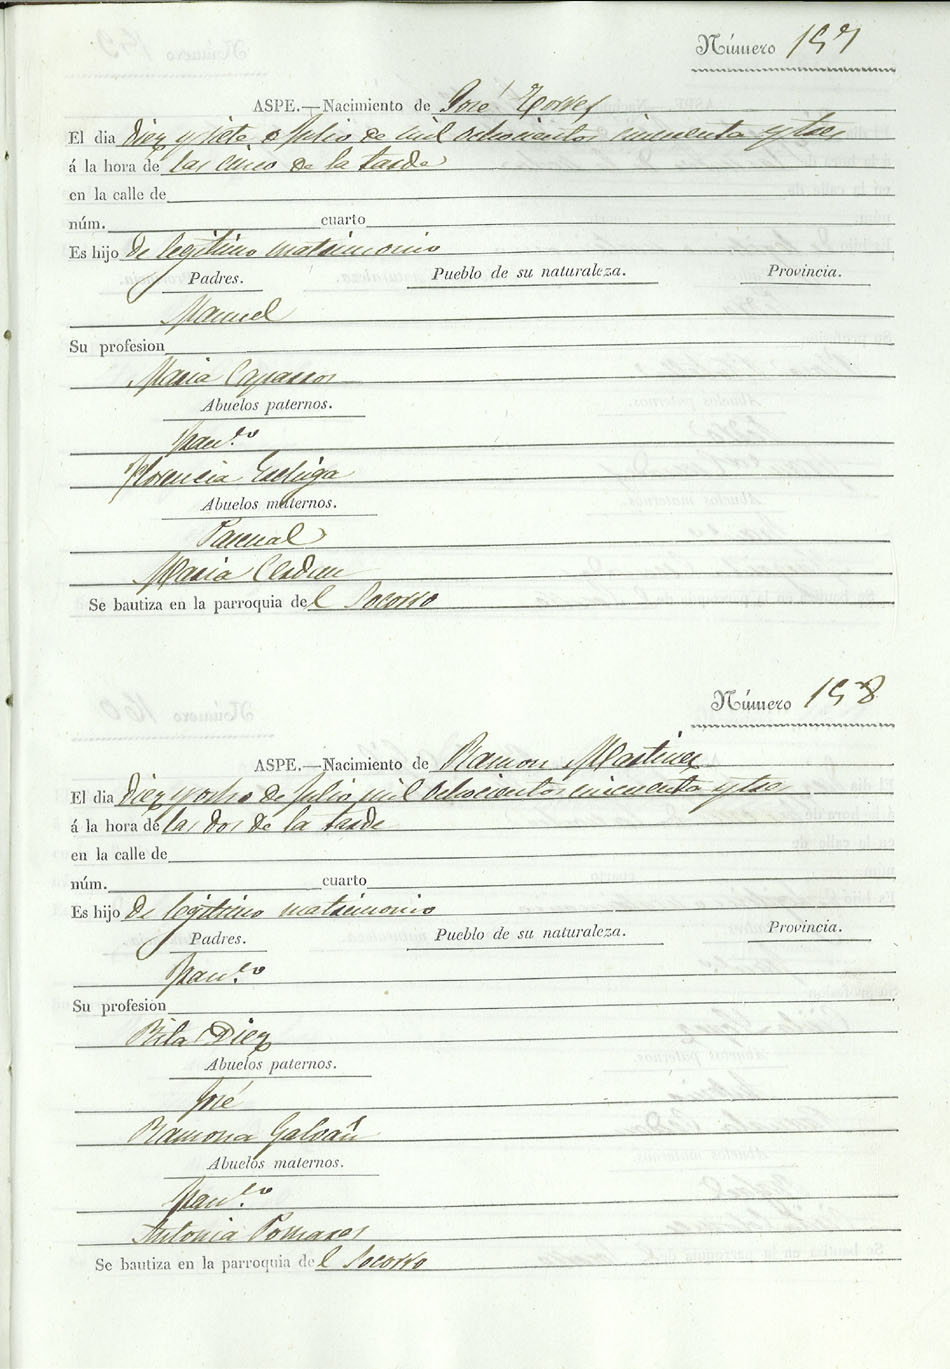 Número 157
ASPE.—Nacimiento de José Torres
El dia Diez y siete de Julio de mil ochocientos cincuenta y tres
á la hora de las cinco de la tarde
en la calle de
núm. cuarto
Es hijo de legitimo matrimonio
Padres. Pueblo de su naturaleza. Provincia.
Manuel
Su profesion
Maria Caparros
Abuelos paternos.
Fran.co
Florencia
Abuelos maternos.
Pascual
Maria Cerdan
Se bautiza en la parroquia del Socorro
Número 158
ASPE.—Nacimiento de Ramon Martinez
El dia Diez y ocho de Julio mil ochocientos cincuenta y tres
á la hora de las dos de la tarde
en la calle de
núm. cuarto
Es hijo de legitimo matrimonio
Padres. Pueblo de su naturaleza. Provincia.
Fran.co
Su profesion
Rita Diez
Abuelos paternos.
José
Ramona Galvañ
Abuelos maternos.
Fran.co
Antonia Pomares
Se bautiza en la parroquia del Socorro